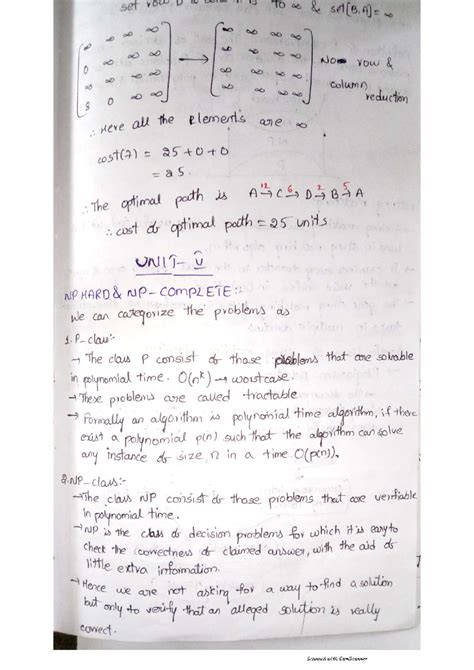 set row D to ∞ & set[B,A] = ∞
∞ ∞ ∞ ∞
∞ ∞ ∞
0 ∞ ∞ ∞
∞ ∞ ∞
3 0 ∞ ∞
→
∞ ∞ ∞ ∞
∞ ∞ ∞ ∞
∞ ∞ ∞ ∞
∞ ∞ ∞ ∞
No row &
column
reduction
∴ Here all the elements are ∞
cost(7) = 25+0+0
= 25.
∴ The optimal path is A 12→ C 6→ D 2→ B 5→ A
∴ cost of optimal path = 25 units
UNIT-V
NP HARD & NP-COMPLETE:-
We can categorize the problems as
1. P-class:-
→ The class P consist of those problems that are solvable
in polynomial time. O(nᵏ) → worstcase.
→ These problems are called tractable
→ Formally an algorithm is polynomial time algorithm, if there
exist a polynomial p(n) such that the algorithm can solve
any instance of size n in a time O(p(n)).
2. NP-class:-
→ The class NP consist of those problems that are verifiable
in polynomial time.
→ NP is the class of decision problems for which it is easy to
check the correctness of claimed answer, with the aid of
little extra information.
→ Hence we are not asking for a way to find a solution
but only to verify that an alleged solution is really
correct.
Scanned with CamScanner